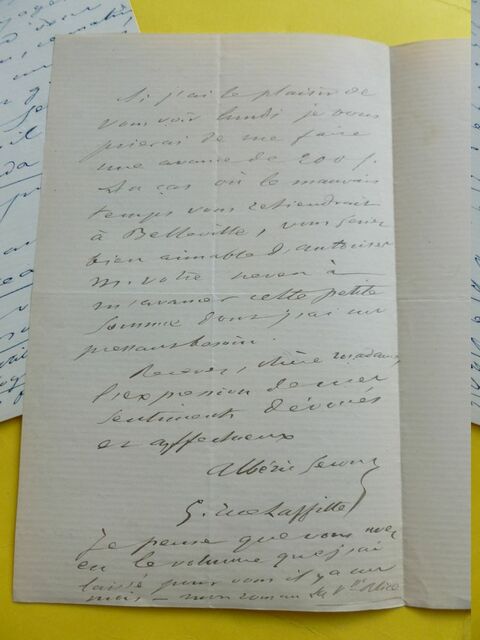 Si j'ai le plaisir de
vous voir lundi je vous
prierai de me faire
une avance de 200 f.
Au cas où le mauvais
temps vous retiendrait
à Belleville, vous seriez
bien aimable d'autoriser
M. votre neveu à
m'avancer cette petite
somme dont j'ai un
pressant besoin.
Recevez, chère madame,
l'expression de mes
sentiments dévoués
et affectueux
Albéric Second
rue Laffitte
Je pense que vous avez
eu le volume que j'ai
laissé pour vous il y a un
mois — mon roman La Vtesse Alice